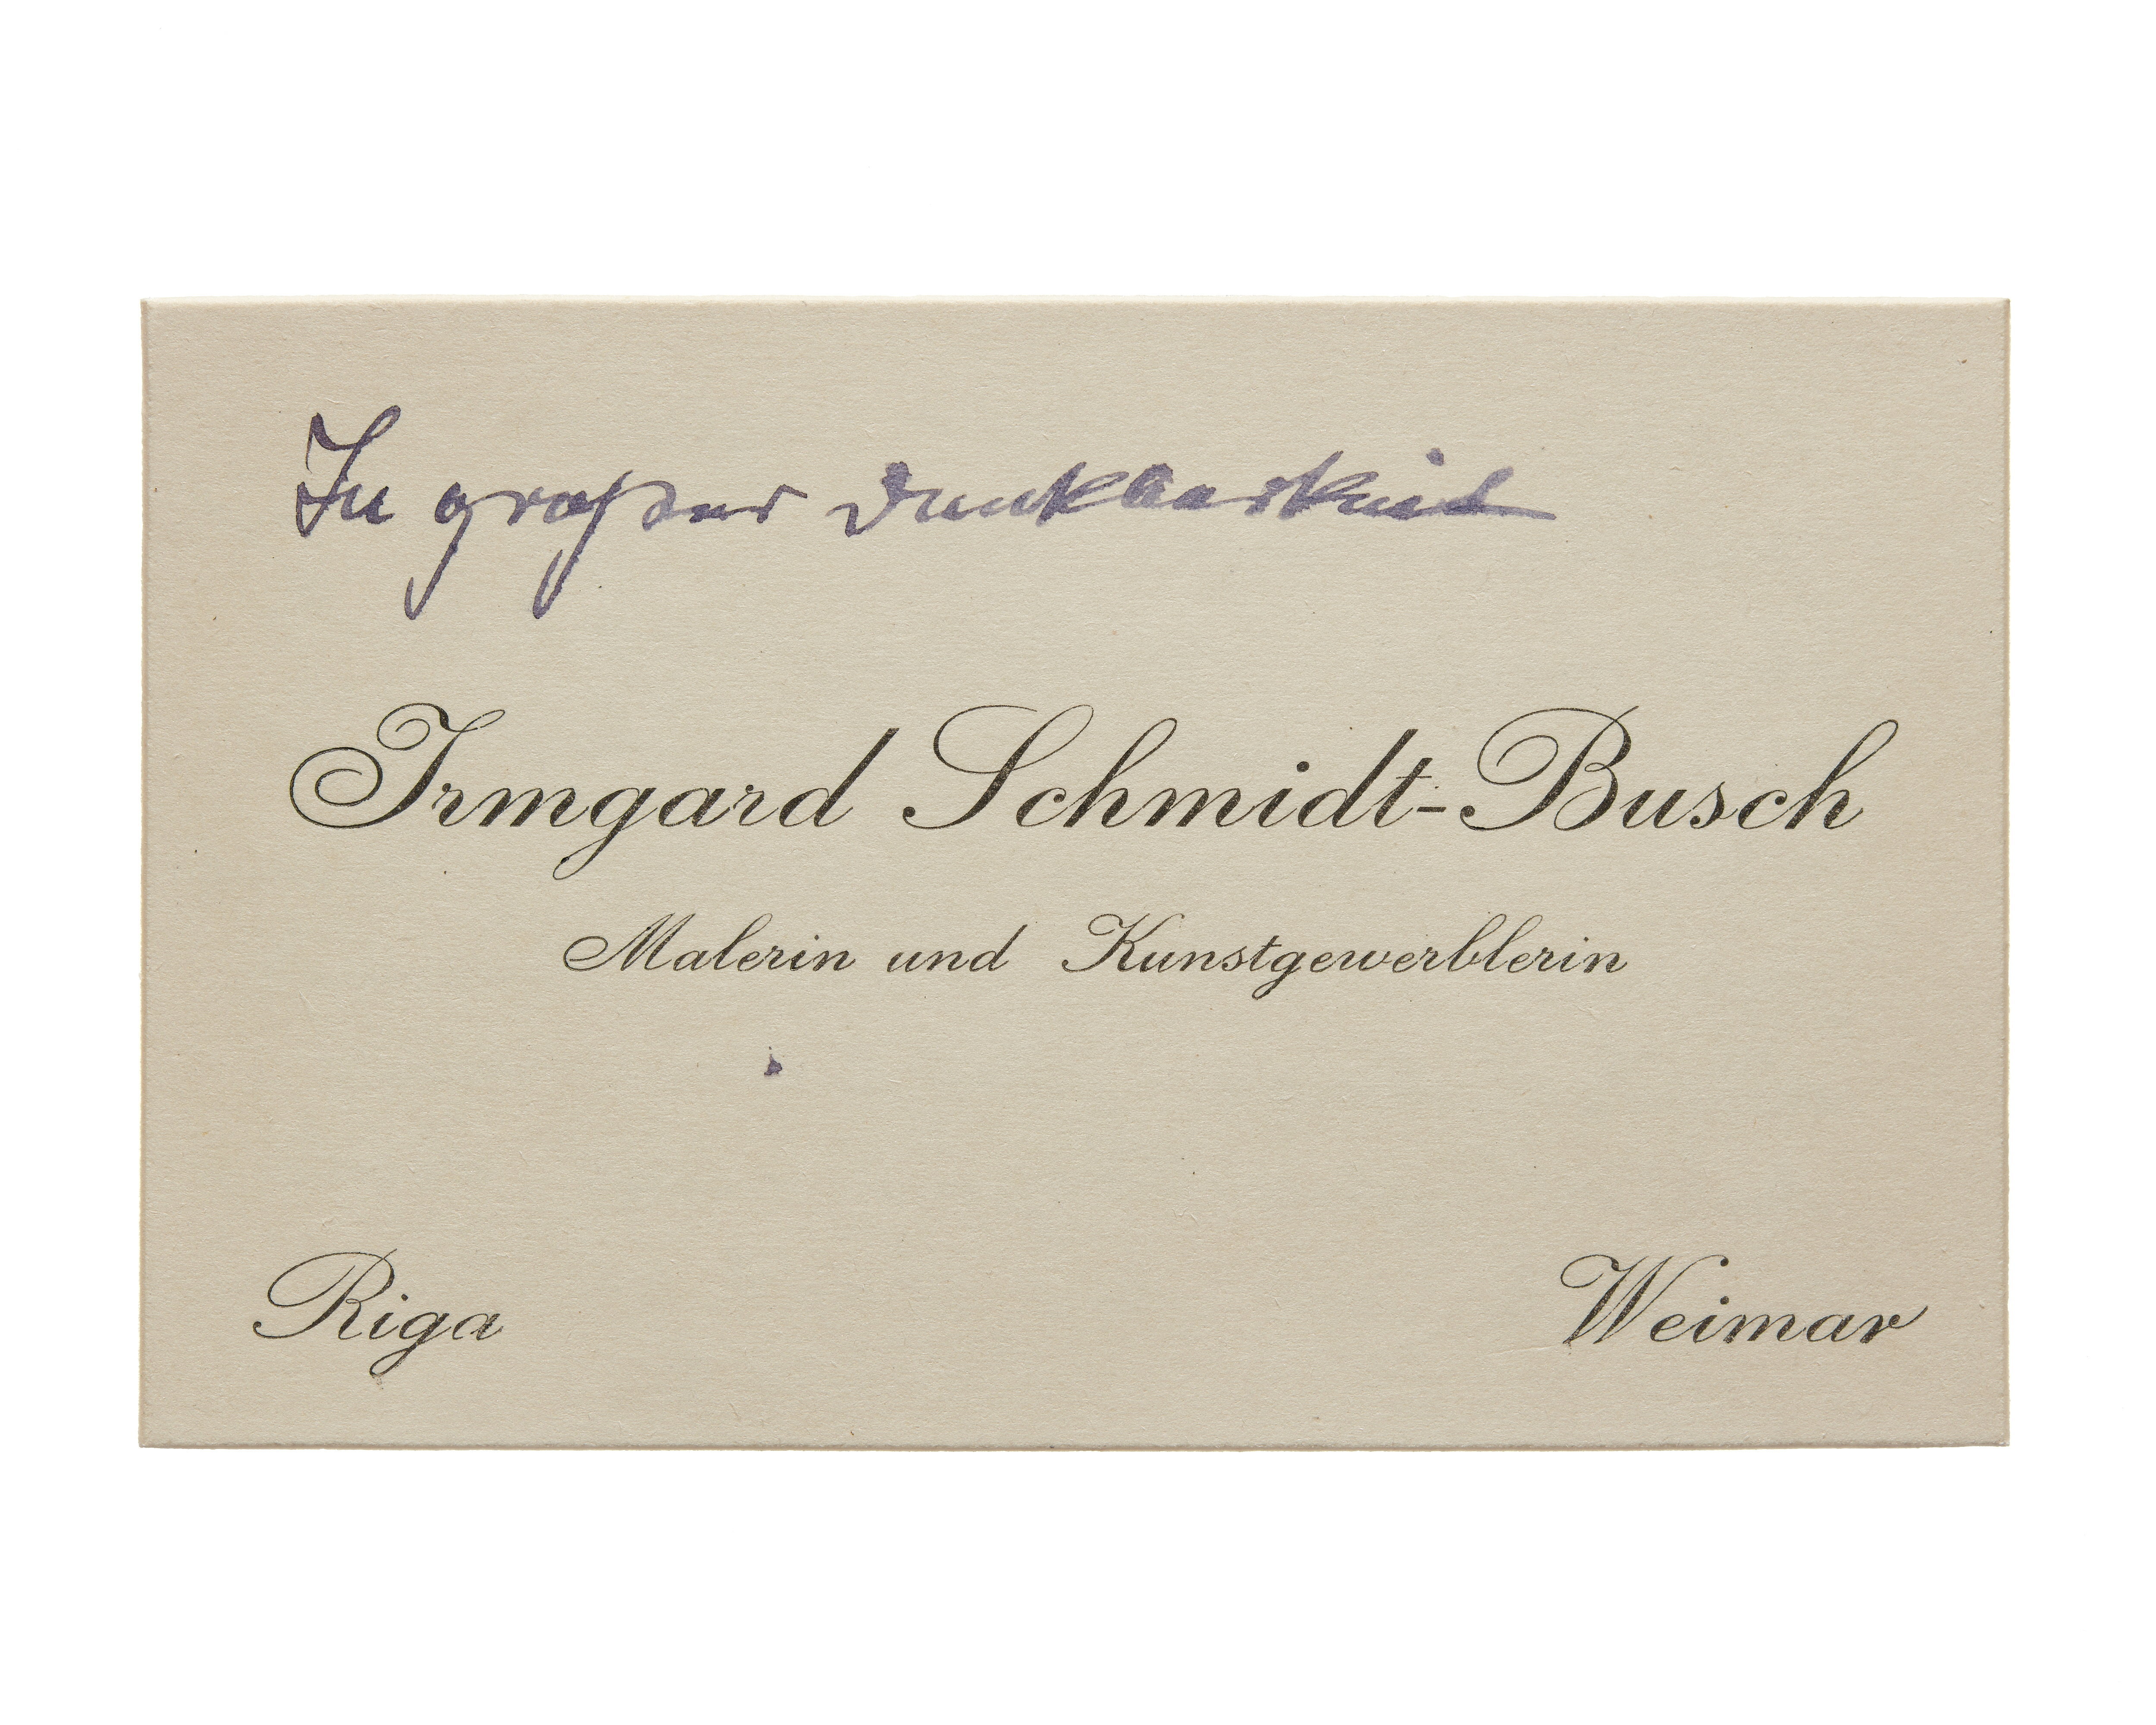 In großer Dankbarkeit
Irmgard Schmidt-Busch
Malerin und Kunstgewerblerin
Riga
Weimar